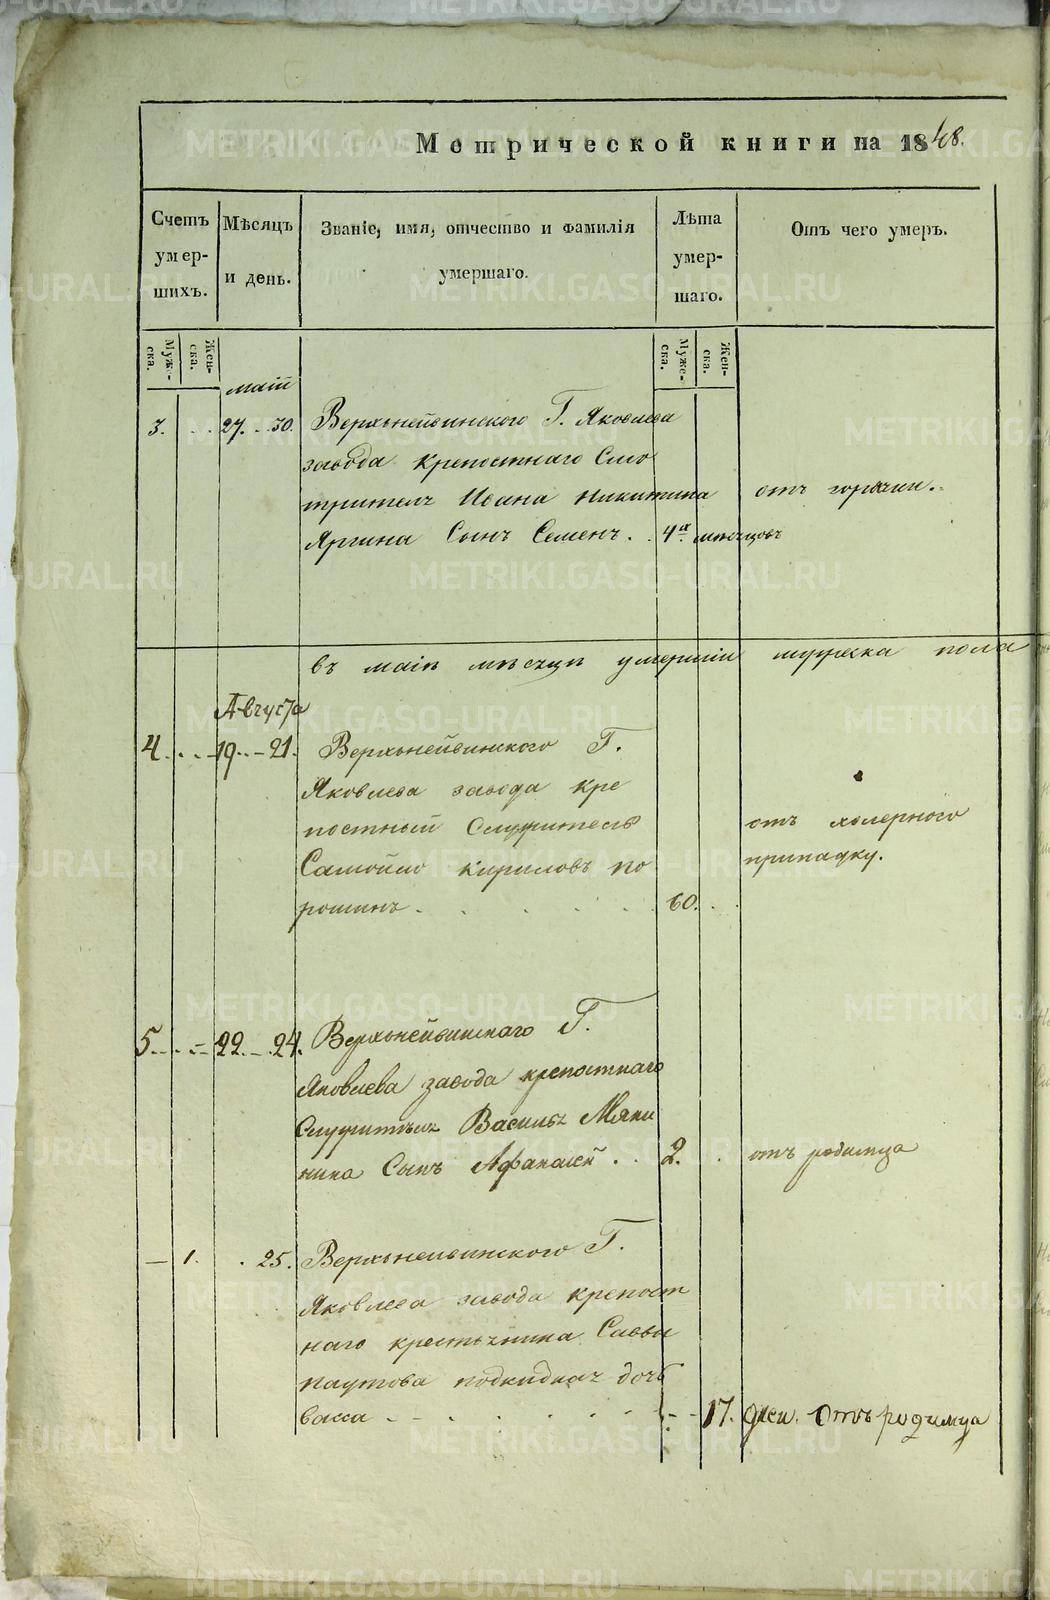 Метрической книги на 1848.
Счетъ умерших.
Мѣсяцъ и день.
Званіе, имя, отчество и фамилія умершаго.
Лѣта умершаго.
Отъ чего умеръ.
Муже-ска.
Жен-ска.
Муже-ска.
Жен-ска.
маій
3. 27. 30. Верхънейвинского Г. Яковлева
завода крепостнаго Смо
трителя Ивана Никитина
отъ горячки.
Яргина Сынъ Семенъ. 4х мѣсяцовъ
въ маіе мѣсяце умершіи мужеска пола
Августа
4. 19. 21. Верхънейвинского Г.
Яковлева завода кре
постный Служитель
отъ холерного
Самойло Кириловъ По
припадку.
рошинъ 60.
5. 22. 24. Верхънейвинскаго Г.
Яковлева завода крепостнаго
Служителя Василья Мяки
нина Сынъ Афанасей 2. отъ родимца
1. 25. Верхънейвинского Г.
Яковлева завода крепост
наго крестьянина Саввы
паутова подкидная дочь
васса 17. дней. Отъ родимца
METRIKI.GASO-URAL.RU